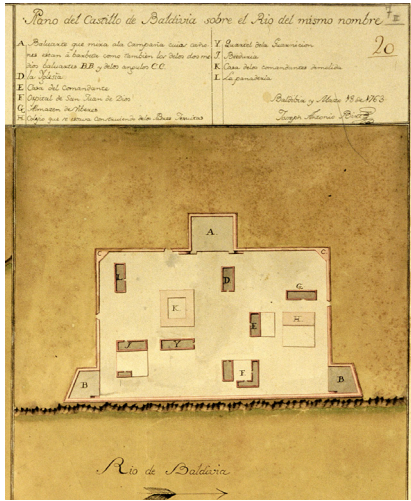 Plano del Castillo de Baldivia sobre el Rio del mismo nombre
20
A. Baluarte que mira ala Campaña cuias caño-
nes estan à barbeta como tambien los delos dos me-
dios baluartes B.B. y delos angulos C.C.
D la Yglesia
E Casa del Comandante
F Ospital de San Juan de Dios
G Almazen de Viberes
H que se estava construiendo delos Padres
Y. Quartel dela Guarnicion
J. Botica
K. Casa de los comandantes demolida
L La panaderia
Baldivia y Marzo 18 de 1763
Joseph Antonio
A
C
C
L
D
G
K
E
H
J
Y
F
B
B
Rio de Baldivia